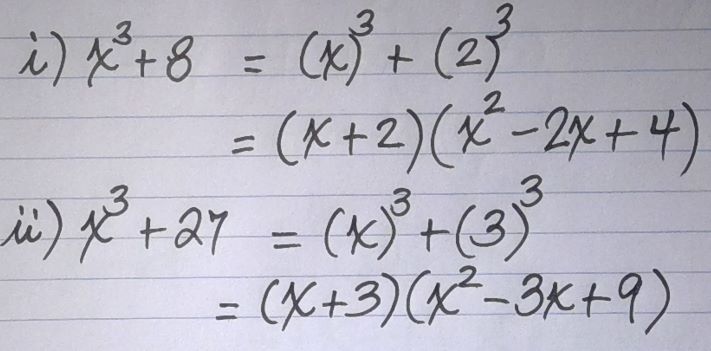 i) x³+8 = (x)³ + (2)³
= (x+2)(x²-2x+4)
ii) x³+27 = (x)³+(3)³
= (x+3)(x²-3x+9)